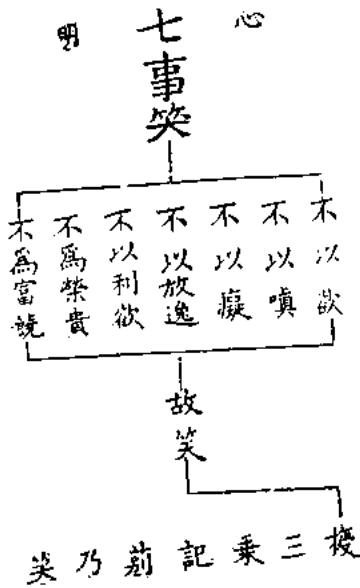 心
七事笑
明
不以欲
不以嗔
不以癡
不以放逸
不以利欲
不爲榮貴
不爲富饒
故笑
授三乘記莂乃笑